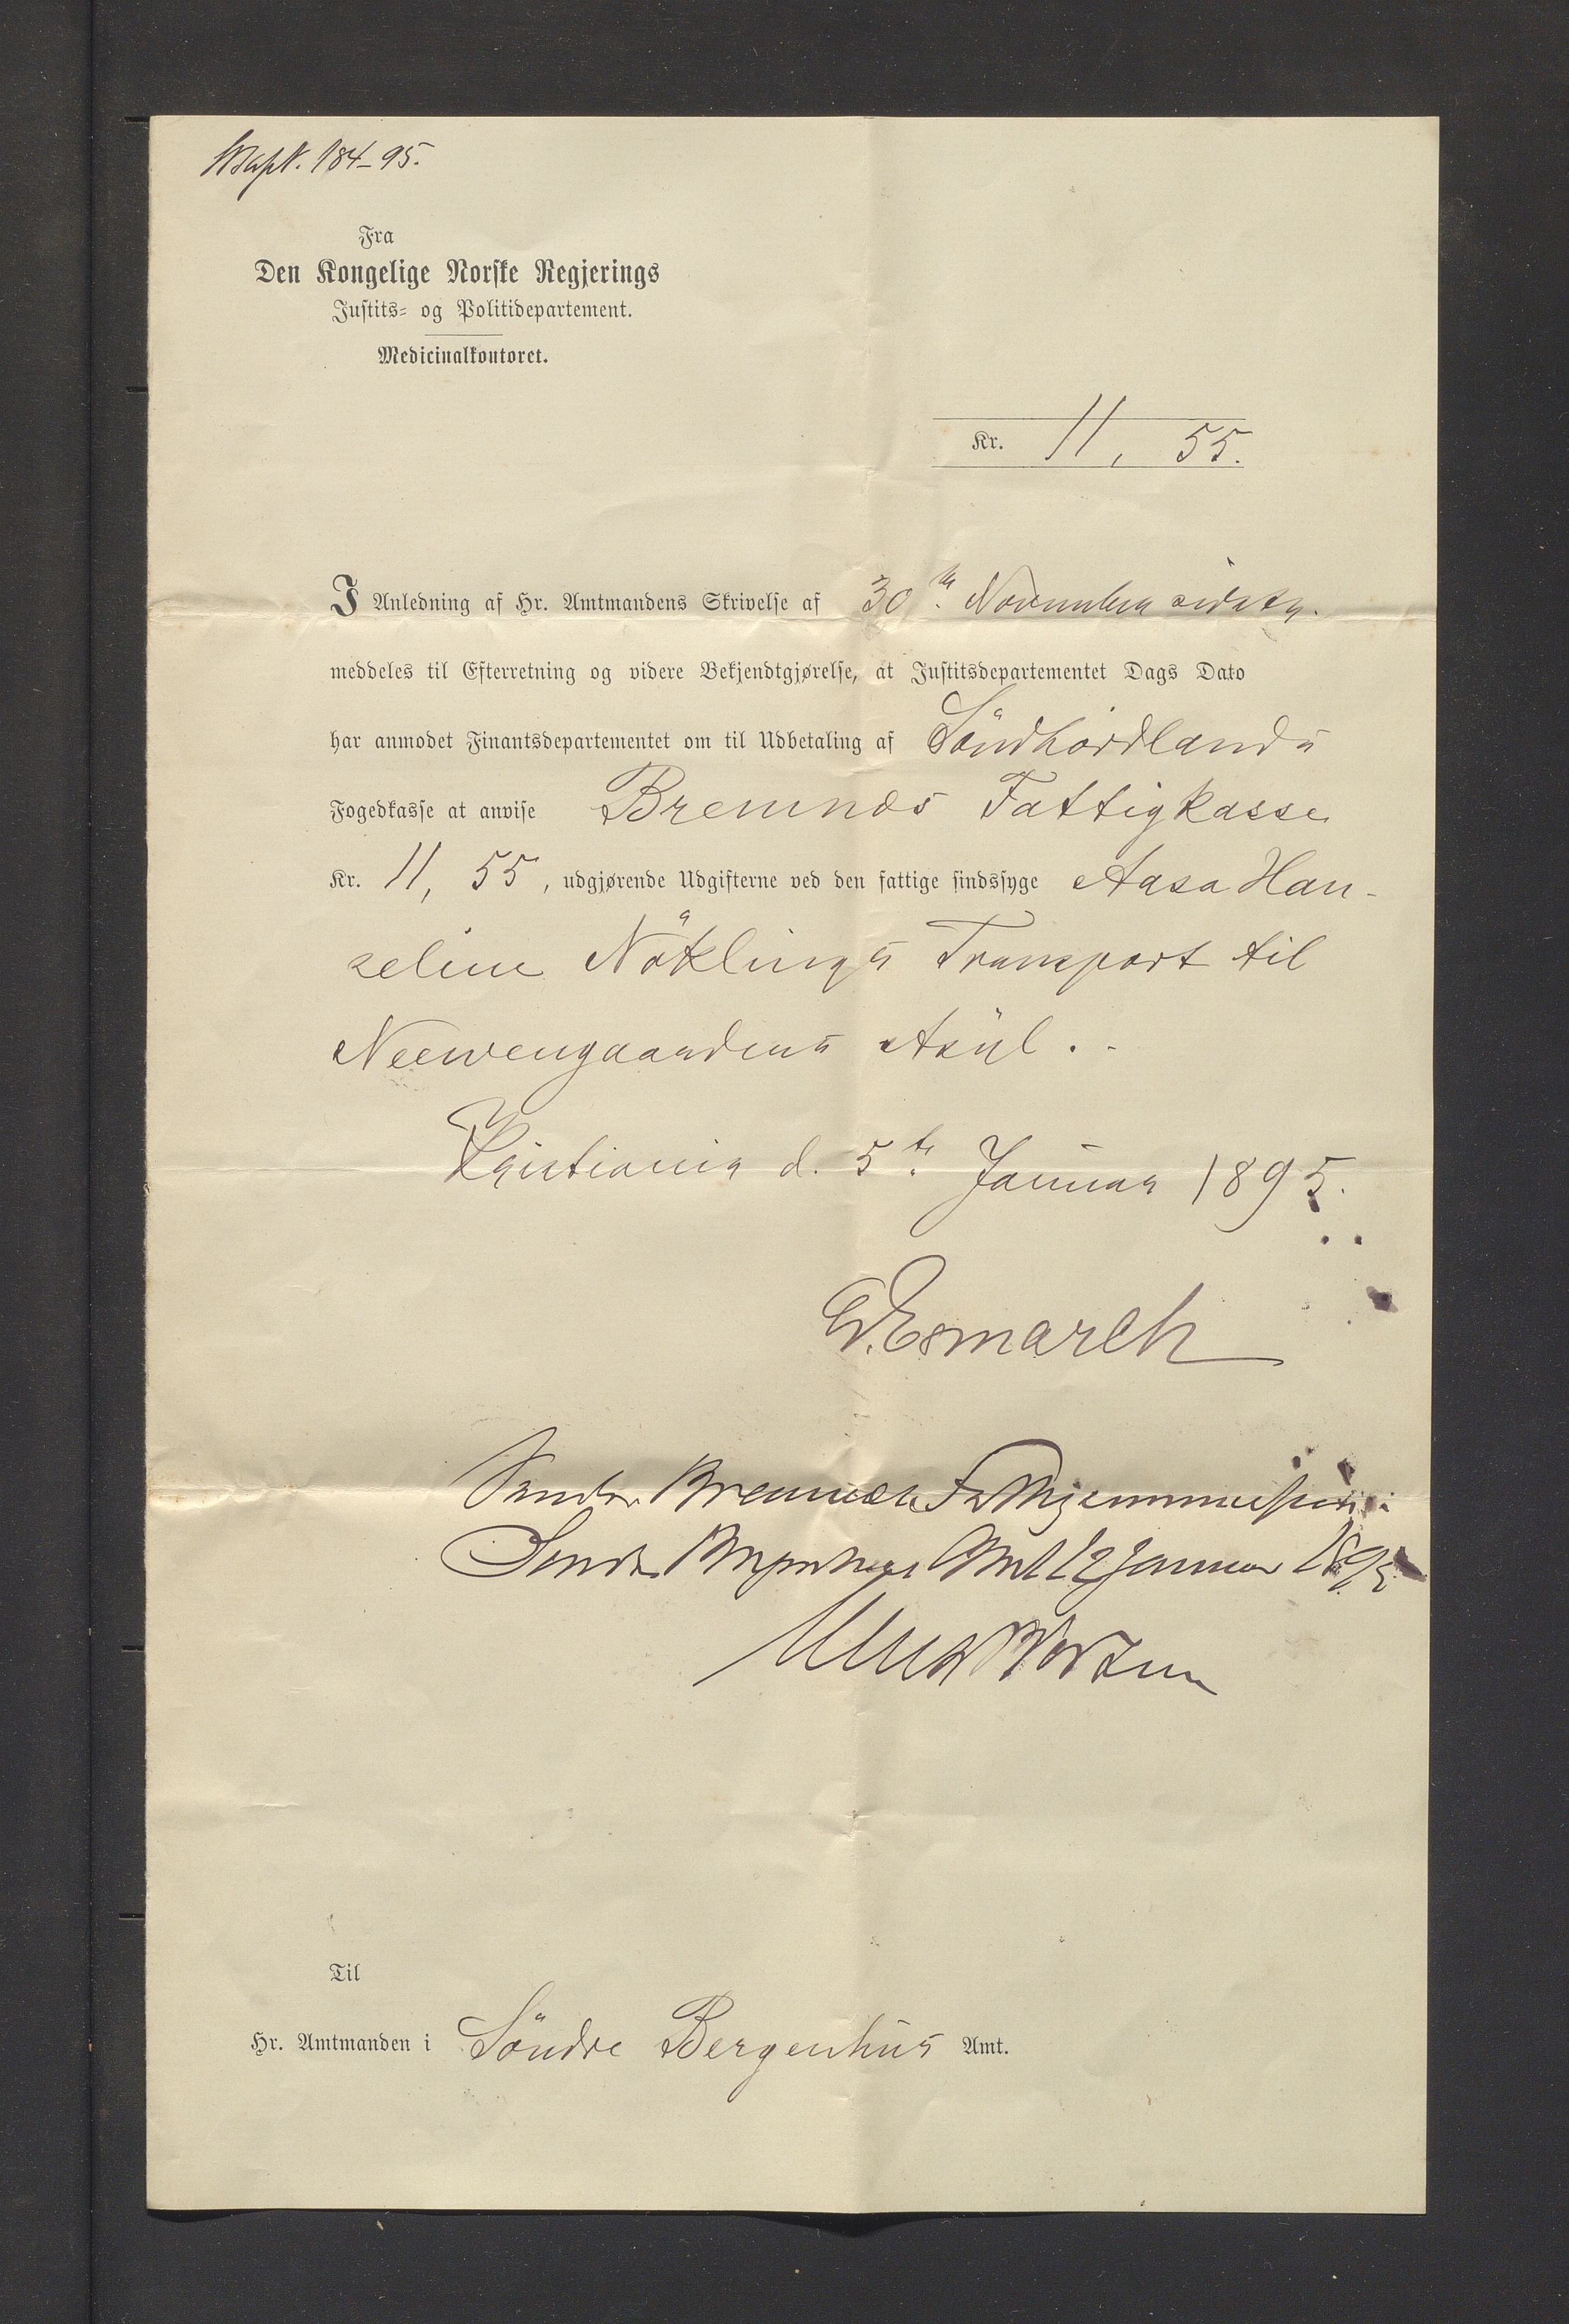 184-95.
Fra
Den Kongelige Norske Regjerings
Justits- og Politidepartement.
Medicinalkontoret.
Kr. 11, 55.
I Anledning af Hr. Amtmandens Skrivelse af 30te November sidstl.
meddeles til Efterretning og videre Bekjendtgjørelse, at Justitsdepartementet Dags Dato
har anmodet Finantsdepartementet om til Udbetaling af Söndhordlands
Fogedkasse at anvise Bremnæs Fattigkasse
Kr. 11, 55, udgjørende Udgifterne ved den fattige sindssyge Aasa Han-
seline Nöklings Transport til
Neevengaardens Asyl.
Kristiania d. 5te Januar 1895.
Esmarch
Sendes Bremnæs Fattigkommission
Søndre Bergenhus Amt 12 Januar 1895
Til
Hr. Amtmanden i Söndre Bergenhus Amt.